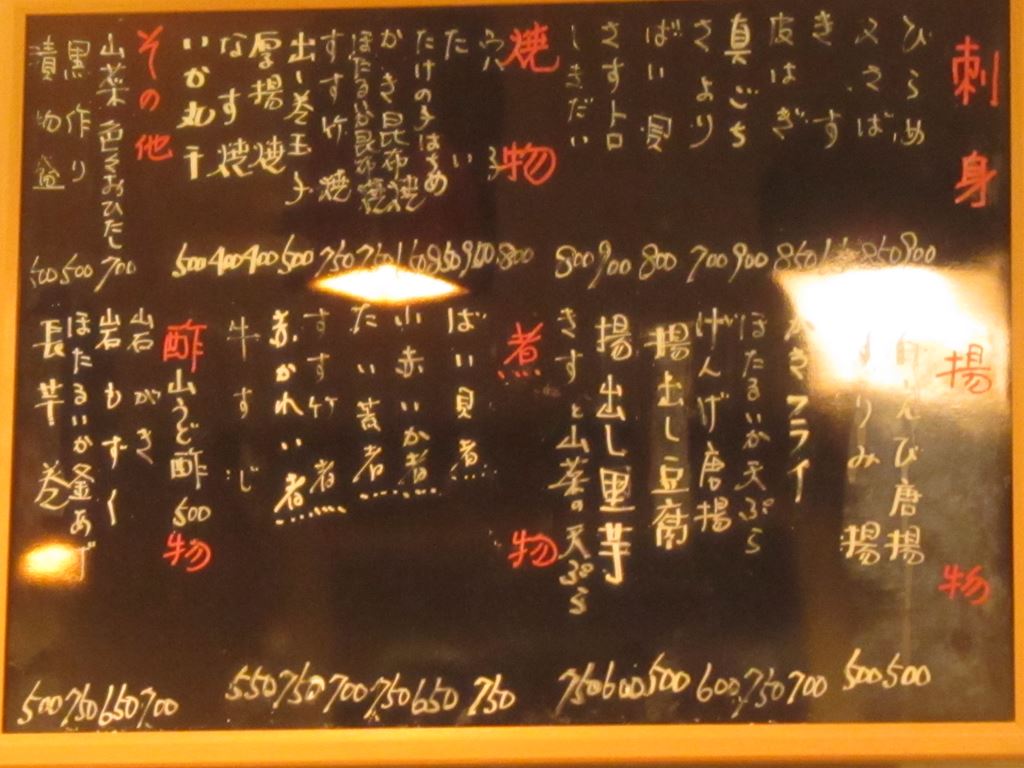 刺身
ひらめ 900
〆さば 850
きす
皮はぎ 850
真ごち 900
さより 700
ばい貝 800
さすトロ 900
しきだい 800
焼物
穴子 800
たい 900
たけのこはさめ 850
かき昆布焼
ほたるいか昆布焼 750
すす竹焼 750
出し巻玉子 500
厚揚焼 400
なす焼 400
いか丸干 500
その他
山菜色々おひたし 700
黒作り 500
漬物盛 500
揚物
えび唐揚 500
揚 500
かきフライ 700
ほたるいか天ぷら 750
げんげ唐揚 600
揚出し豆腐 500
揚出し里芋 600
きすと山菜の天ぷら 750
煮物
ばい貝煮 750
小赤いか煮 650
たい煮 750
すす竹煮 700
赤かれい煮 750
牛すじ 550
酢物
山うど酢 500
岩がき 700
岩もずく 650
ほたるいか釜あげ 750
長芋巻 500